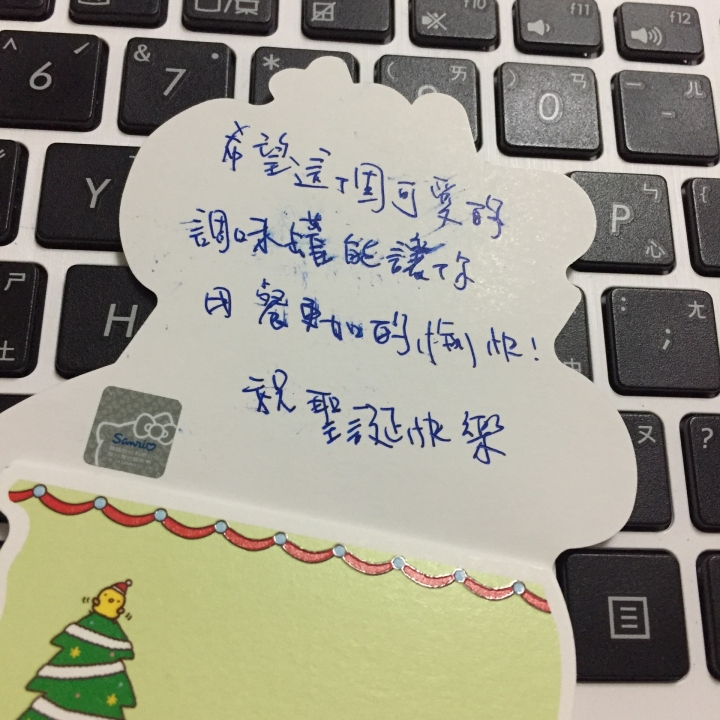 f10
f11
f12
^
6
&
7
*
(
ㄞ
)
ㄢ
0
ㄦ
-
Y
ㄅ
P
心
ㄕ
土
H
:
;
ㄤ
ㄡ
?
希望這個可愛的
調味罐能讓你
用餐更加的愉快!
祝聖誕快樂
Sanrio